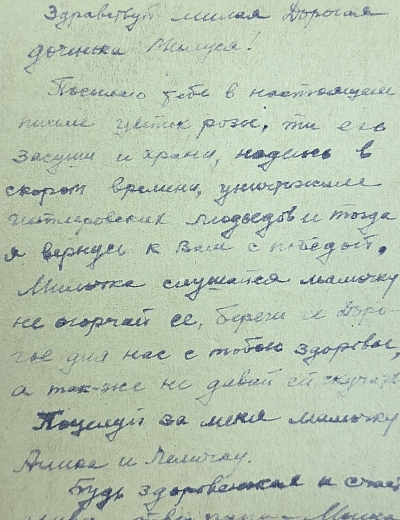 Здравствуй милая Дорогая
дочинка Милуся!
Посылаю тебе в настоящем
письме цветик розы, ты его
засуши и храни, надеюсь в
скором времени, уничтожим
гитлеровских людоедов и тогда
я вернусь к Вам с победой.
Милочка слушайся мамочку
не огорчай ее, береги ее Доро-
гое для нас с тобою здоровье,
а так-же не давай ей скучать
Поцелуй за меня мамочку
Алика и
Будь здоровенькая и
папа